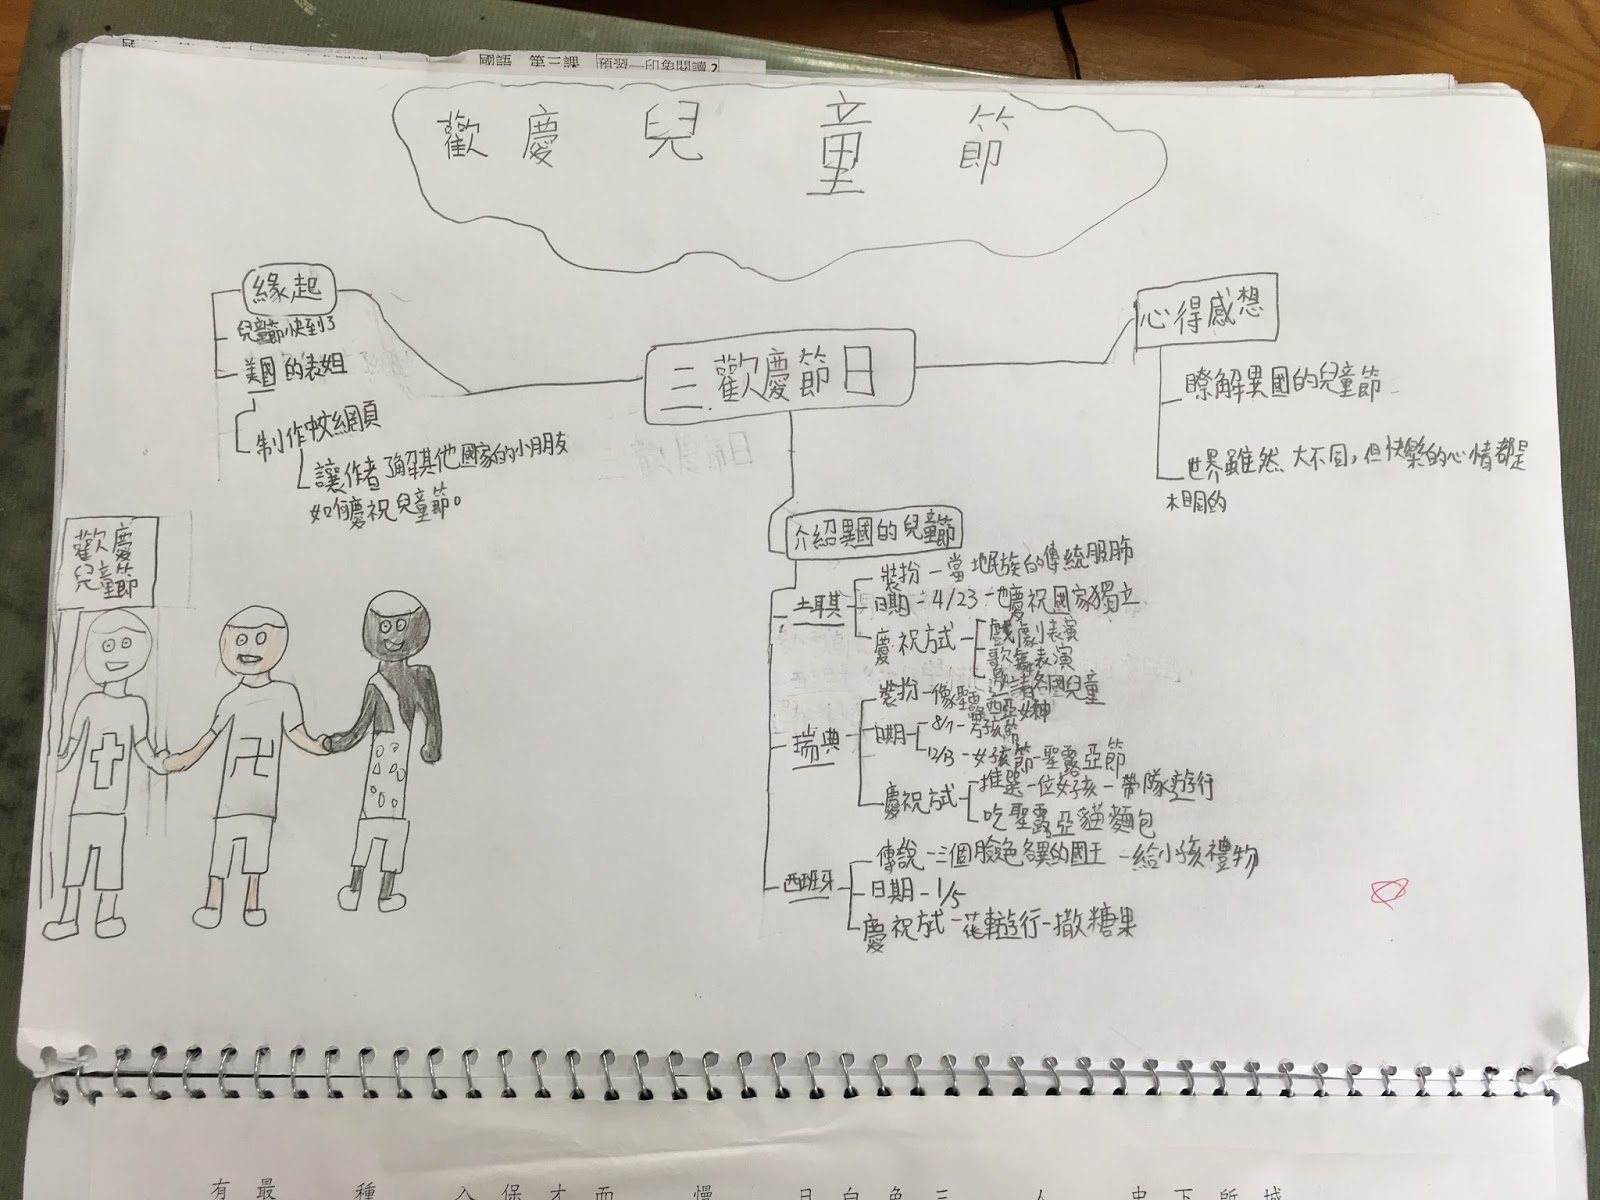 國語 第三課 預習—印象閱讀2
歡慶兒童節
緣起
兒童節快到了
美國的表姐
制作
網頁
讓作者了解其他國家的小朋友
如何慶祝兒童節。
三.歡慶節日
心得感想
瞭解異國的兒童節
世界雖然大不同，但快樂的心情都是
相同的
歡慶
兒童節
介紹異國的兒童節
土耳其
裝扮－當地民族的傳統服飾
日期－4/23－也慶祝國家獨立
慶祝方式
戲劇表演
歌舞表演
邀請各國兒童
瑞典
裝扮－像聖露西亞女神
日期
8/7－男孩節
12/13－女孩節－聖露亞節
慶祝方式
推選一位女孩－帶隊遊行
吃聖露亞貓麵包
西班牙
傳說－三個臉色各異的國王－給小孩禮物
日期－1/5
慶祝方式－花車遊行－撒糖果
卍
有 最 種 入 保 才 而 慢 日 白 色 三 人 中 下 所 城